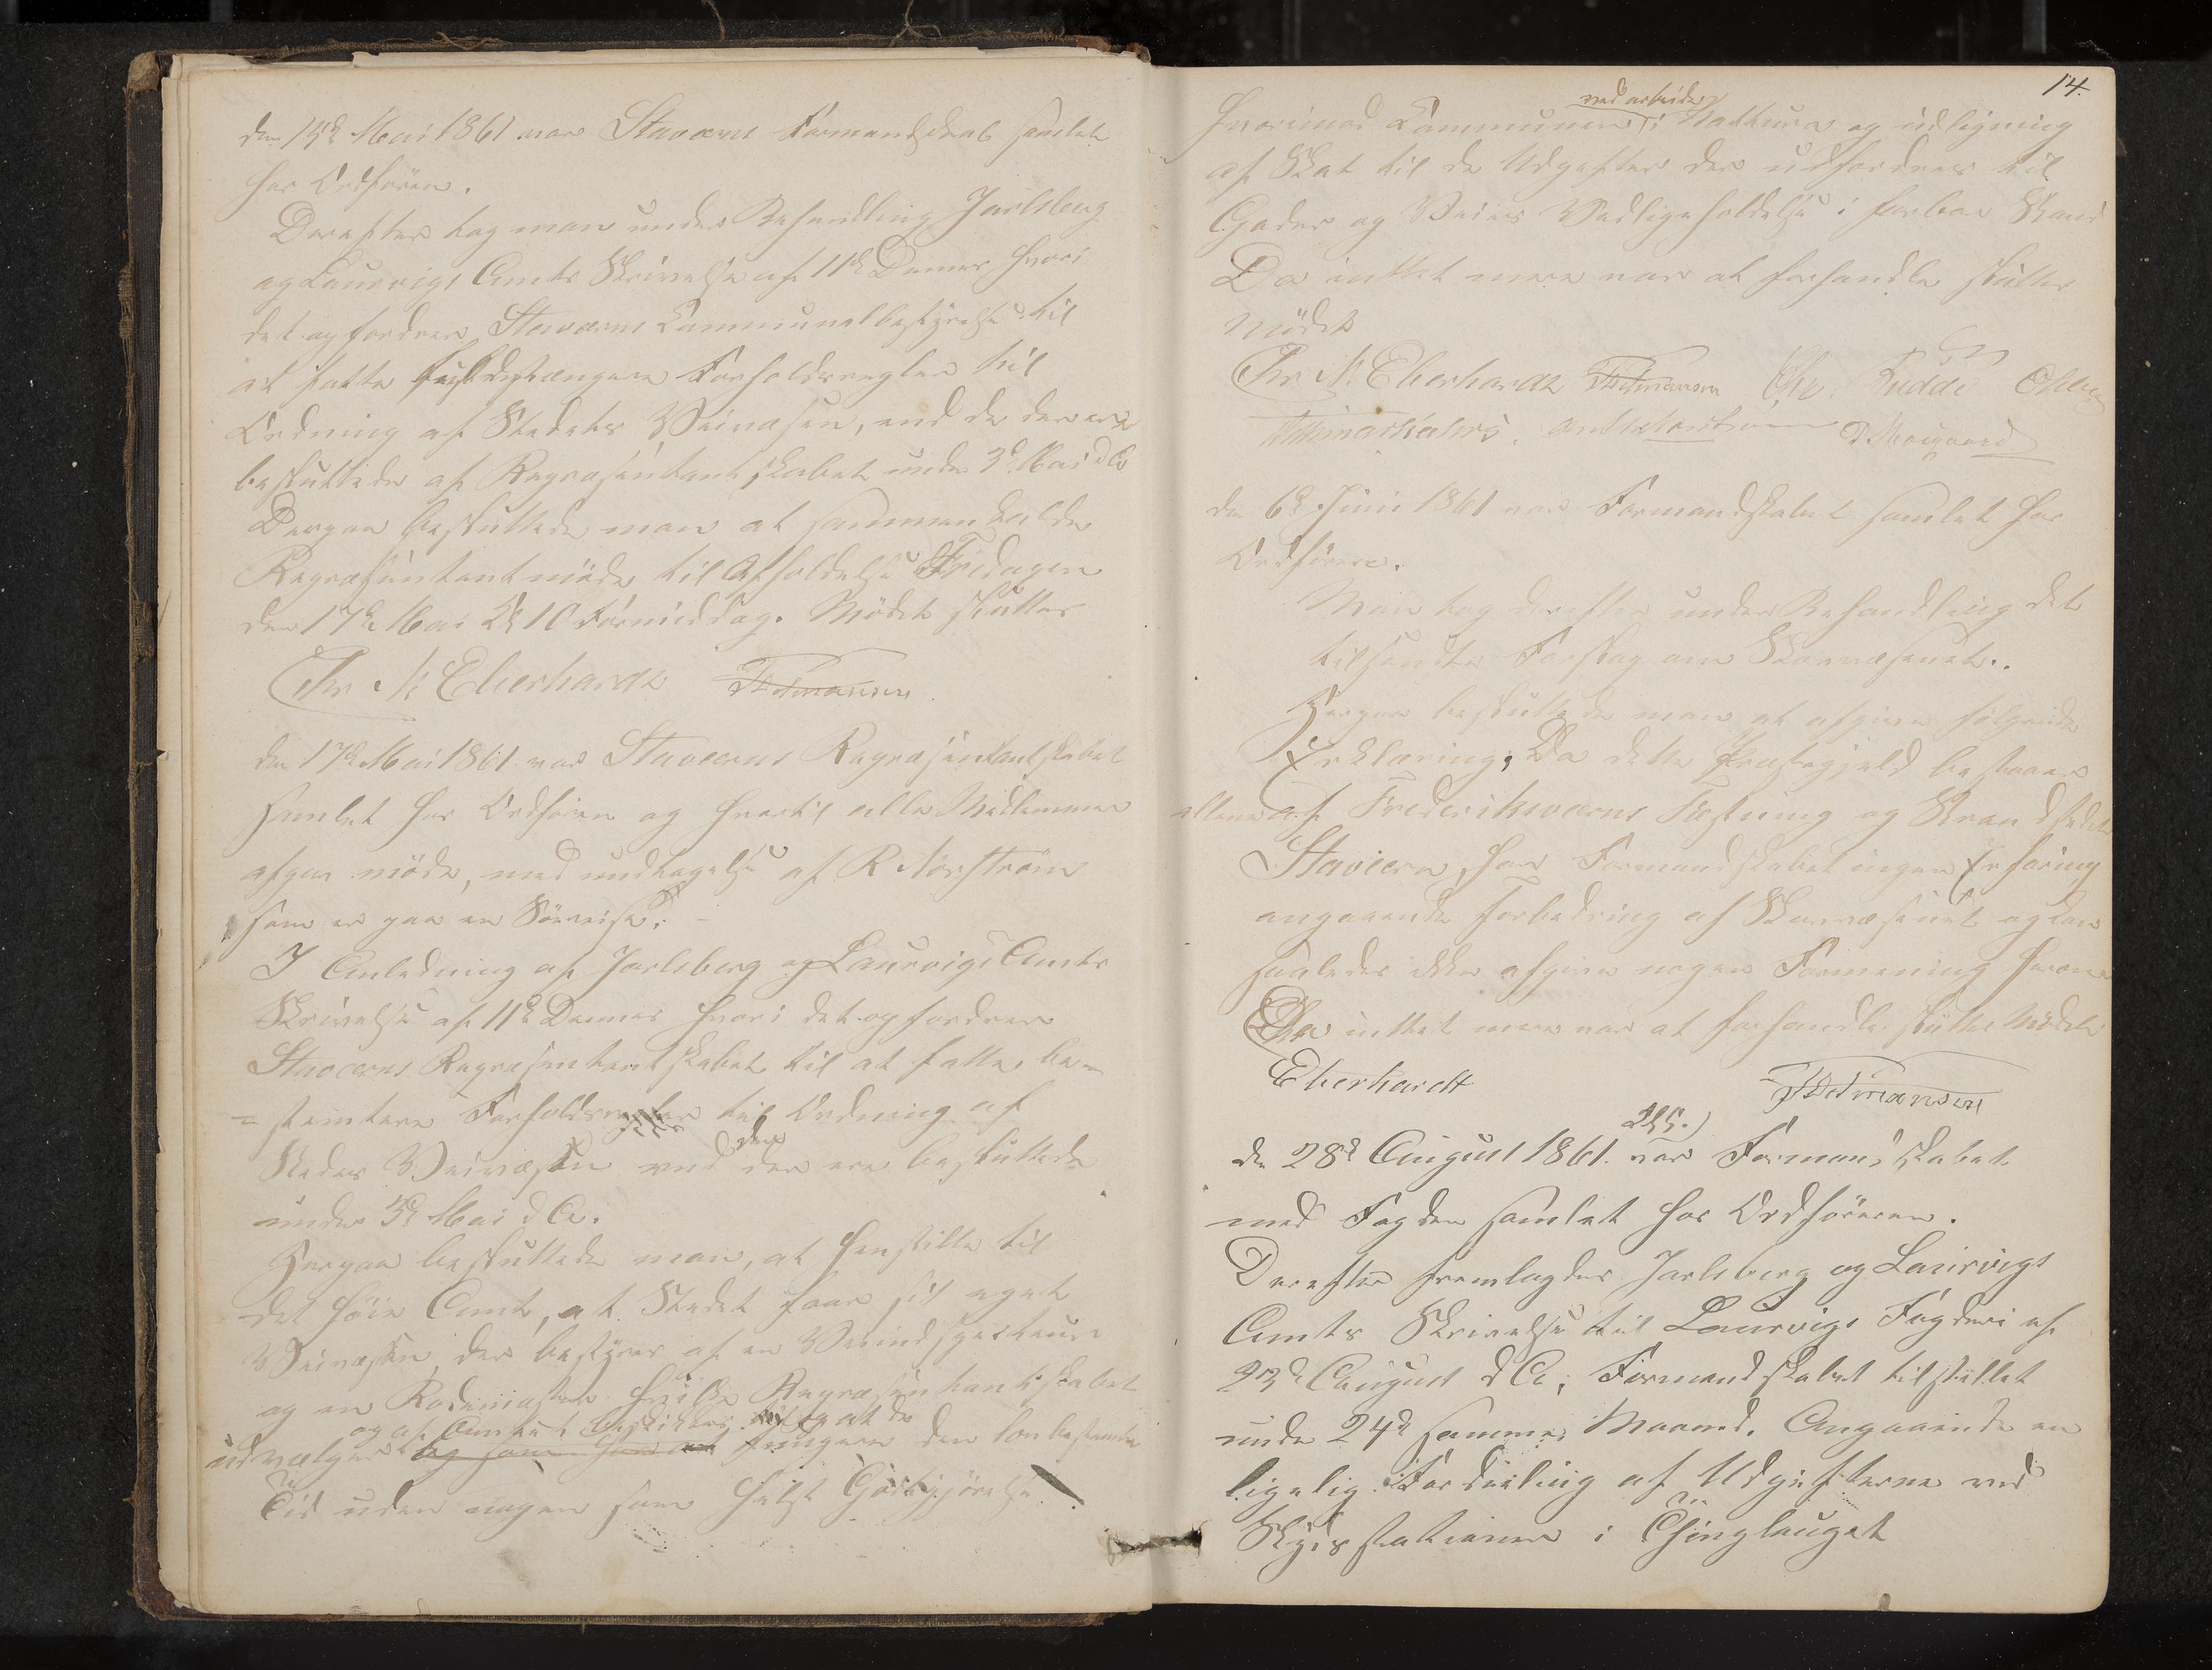 den 15de Mai 1861 var Staværns Formandskab samlet
hos Ordføren.
Derefter tog man under Behandling Jarlsberg
og Laurvigs Amts Skrivelse af 11te Dennes hvori
det opfordrer Staværns Communalbestyrelse til
at fatte fuldstængere Forholdsregler til
Ordning af Stedets Veivæsen, end de der ere
besluttede af Repræsentantskabet under 3de Mai d A
Derpaa besluttede man at sammenkalde
Repræsentantmøde til Afholdelse Fredagen
den 17de Mai Kl 10 Formiddag. Mødet sluttes
Chr N Eberhardt
den 17de Mai 1861 var Staværns Repræsentantskabet
samlet hos Ordføren og hvortil alle Medlemmer
afgav møde, med undtagelse af R Norström
som er paa en Sørreise.
I Anledning af Jarlsberg og Laurvigs Amts
Skrivelse af 11te Dennes hvori det opfordrer
Staværns Repræsentantskabet til at fatte be=
=stemtere Forholdsregler til Ordning af
Stedes Veivæsen end den der ere besluttede
under 3de Mai d A.
Herpaa besluttede man, at henstille til
det høie Amt, at Stedet faar sit eget
Veivæsen, der bestyres af en Veiinspecteur
og en Rodemester hvilke Repræsentantskabet
og af Amtet beskikkes til at de
udvælger og som fungere den lovbestemte
Tid uden nogen som helst Godtgjørelse.
14.
ved arbeide
hvorimod Communen i Natura og udligning
af Skat til de Udgifter der udfordres til
Gaders og Veies Vedligeholdelse i farbar Stand
Da intet mere var at forhandle sluttes
Mødet
Chr N. Eberhardt Chr. Rudde Olsen
den 6te Juni 1861 var Formandskabet samlet hos
Ordføren.
Man tog derefter under Behandling det
tilsendte Forslag om Skovvæsenet..
Herpaa besluttede man at afgive følgende
Erklæring; Da dette Præstegjeld bestaaer
allene af Frederiksværns Fæstning og Strandstedet
Staværn, har Formandskabet ingen Erfaring
angaaende Forbedring af Skovvæsenet og kan
saaledes ikke afgive nogen Formening herom
Da intet mere var at forhandle sluttes Mødet
Eberhardt
den 28de August 1861. var Formandskabet
med Fogden samlet hos Ordføreren.
Derefter fremlagdes Jarlsberg og Laurvigs
Amts Skrivelse til Laurvigs Fogderi af
23de August d A; Formandskabet tilstillet
under 24de samme Maaned. Angaaende en
ligelig Fordeeling af Udgifterne ved
Skydsstationerne i Thinglauget